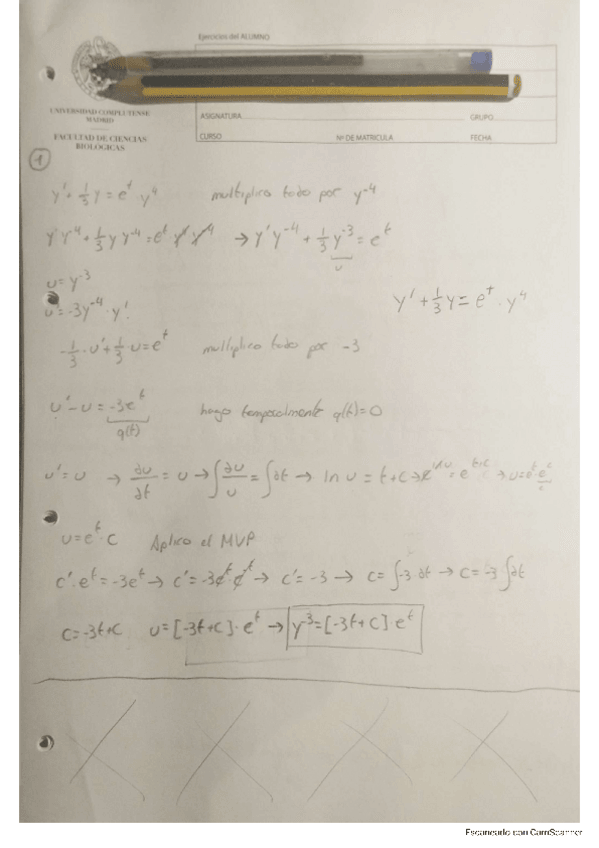 Ejercicios del ALUMNO
UNIVERSIDAD COMPLUTENSE
MADRID
FACULTAD DE CIENCIAS
BIOLÓGICAS
ASIGNATURA
GRUPO
CURSO
Nº DE MATRICULA
FECHA
1
y' + 1/3 y = e^t · y^4 multiplico todo por y^-4
y' y^-4 + 1/3 y y^-4 = e^t y^4 y^-4 → y' y^-4 + 1/3 y^-3 = e^t
u
u = y^-3
u' = -3y^-4 · y'
y' + 1/3 y = e^t · y^4
-1/3 · u' + 1/3 · u = e^t multiplico todo por -3
u' - u = -3e^t hago temporalmente q(t) = 0
q(t)
u' = u → ∂u/∂t = u → ∫ ∂u/u = ∫ ∂t → ln u = t + c → e^ln u = e^t+c → u = e^t · e^c
c
u = e^t · c Aplico el MVP
c' · e^t = -3e^t → c' = -3 e^t · e^t → c' = -3 → c = ∫ -3 · ∂t → c = -3 ∫ ∂t
c = -3t + c u = [-3t + c] · e^t → y^-3 = [-3t + c] e^t
Escaneado con CamScanner